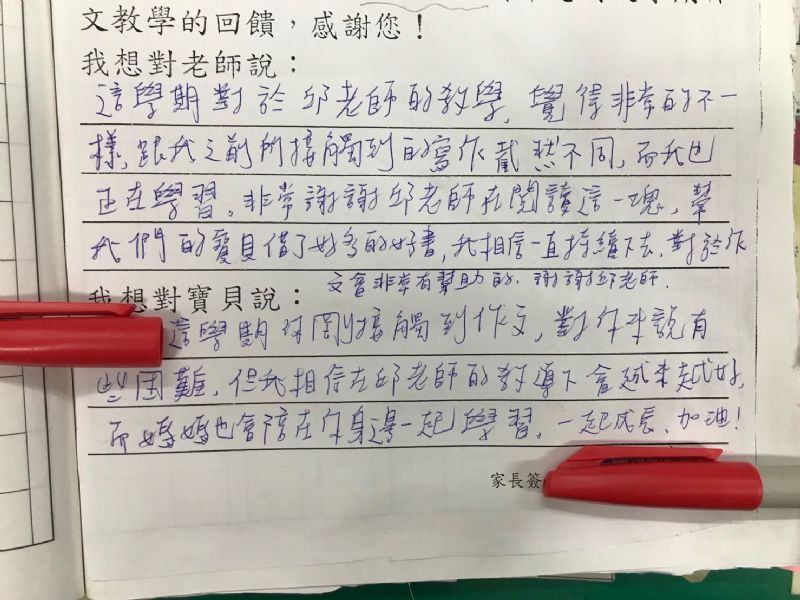 文教學的回饋，感謝您！
我想對老師說：
這學期對於邱老師的教學，覺得非常的不一
樣，跟我之前所接觸到的寫作截然不同，而我也
正在學習。非常謝謝邱老師在閱讀這一塊，幫
我們的寶貝借了好多的好書，我相信一直持續下去，對於作
文會非常有幫助的，謝謝邱老師．
我想對寶貝說：
這學期你剛接觸到作文，對你來說有
些困難，但我相信在邱老師的教導下會越來越好，
而媽媽也會陪在你身邊一起學習，一起成長、加油！
家長簽